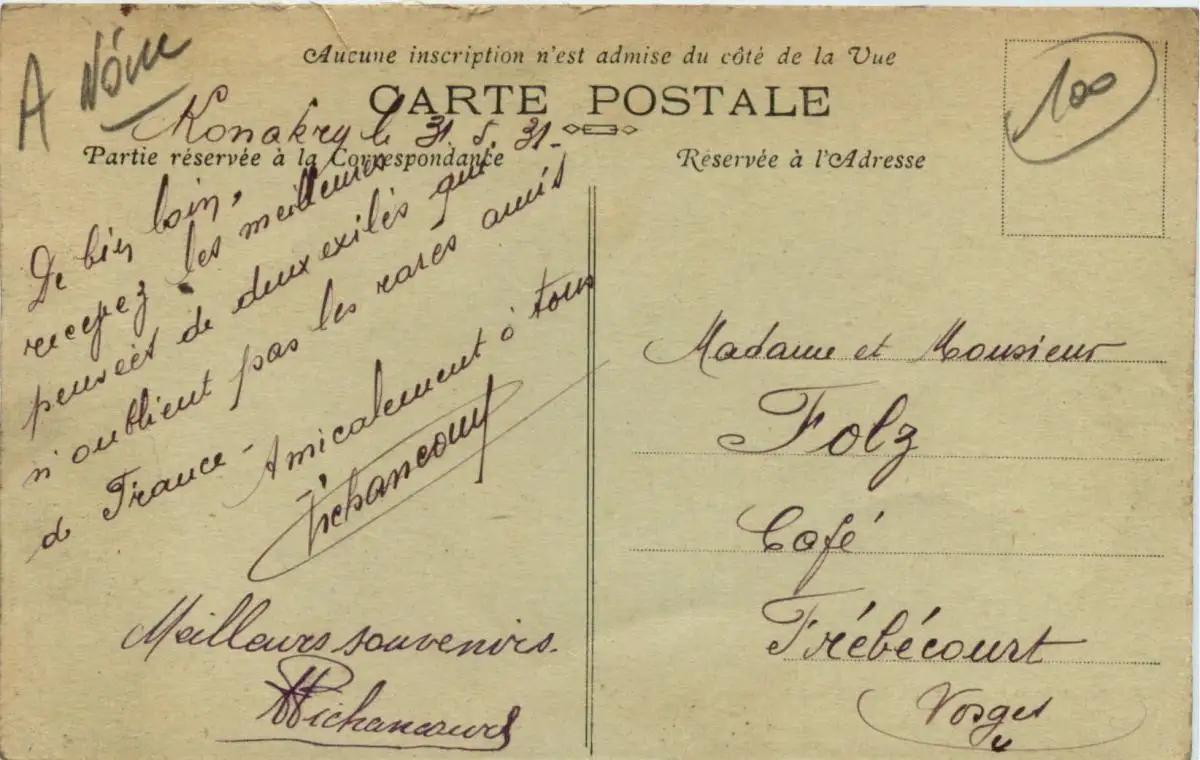 A
100
Aucune inscription n'est admise du côté de la Vue
CARTE POSTALE
Partie réservée à la Correspondance
Réservée à l'Adresse
Konakry le 31. 5. 31.-
De bien loin,
recevez les meilleures
pensées de deux exilés qui
n'oublient pas les rares amis
de France - Amicalement à tous
Pichancourt
Meilleurs souvenirs.
Pichancourt
Madame et Monsieur
Folz
Café
Frébécourt
Vosges